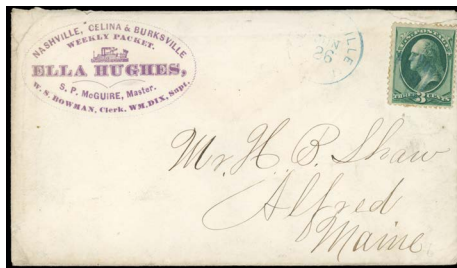 NASHVILLE, CELINA & BURKSVILLE
WEEKLY PACKET.
ELLA HUGHES,
S. P. McGUIRE, Master.
W. S. BOWMAN, Clerk. WM. DIX, Supt.
VILLE
26
U.S. POSTAGE
3
CENTS
Mr. H. B. Shaw
Alfred
Maine